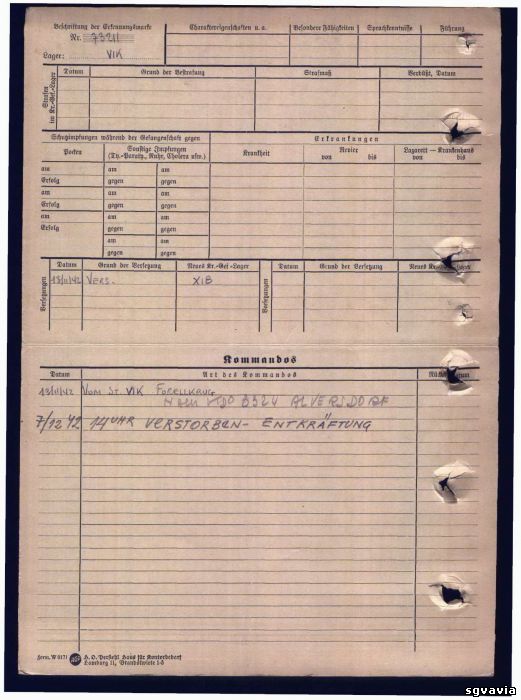 Beschriftung der Erkennungsmarke
Nr. 73211
Lager: VIK
Charaktereigenschaften u. a.
Besondere Fähigkeiten
Sprachkenntnisse
Führung
Strafen im Kr.-Gef.-Lager
Datum
Grund der Bestrafung
Strafmaß
Verbüßt, Datum
Schutzimpfungen während der Gefangenschaft gegen
Erkrankungen
Pocken
Sonstige Impfungen
(Ty.-Paraty., Ruhr, Cholera usw.)
Krankheit
Revier
von bis
Lazarett — Krankenhaus
von bis
am am am
Erfolg gegen gegen
am am am
Erfolg gegen gegen
am am am
Erfolg gegen gegen
am am
gegen gegen
Versetzungen
Datum Grund der Versetzung Neues Kr.-Gef.-Lager
13/11/42 VERS. XIB
Versetzungen
Datum Grund der Versetzung Neues
Kommandos
Datum Art des Kommandos
13/11/42 VOM ST. VIK FORELLKRUG
NACH KDO 3324 ALVERSDORF
7/12 42 14 UHR VERSTORBEN - ENTKRÄFTUNG
Form. W 0171 H. O. Persiehl Haus für Kontorbedarf
Hamburg 11, Brandstwiete 1-5
sgvavia